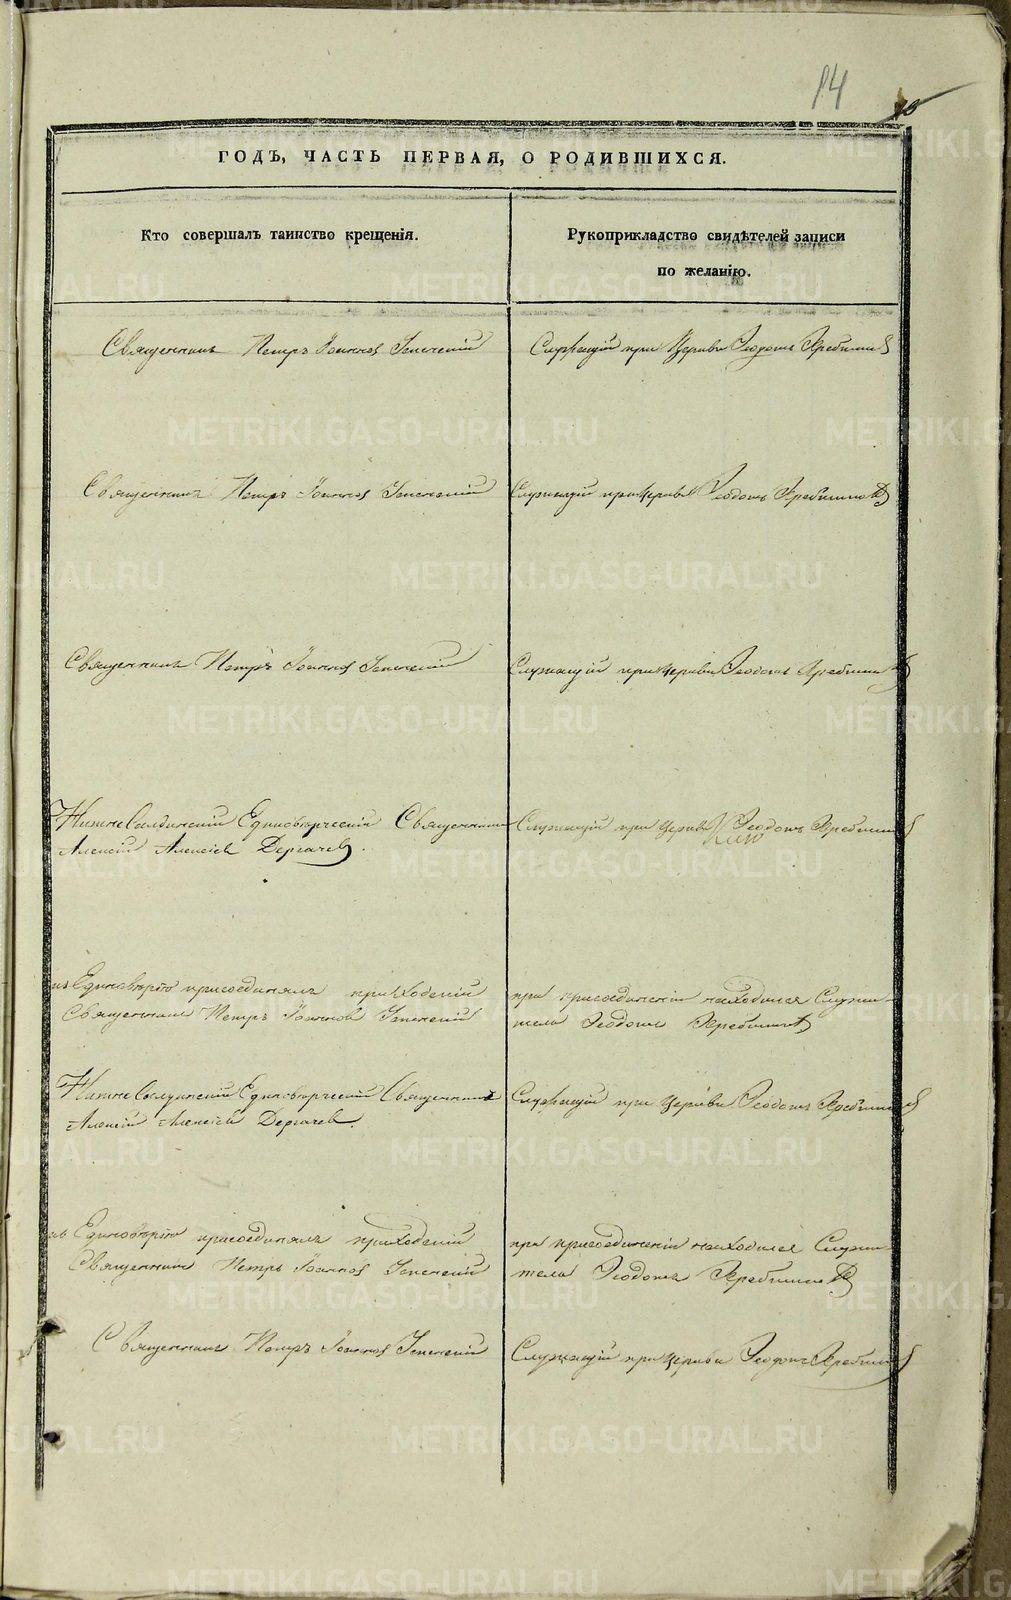 14
ГОДЪ, ЧАСТЬ ПЕРВАЯ, О РОДИВШИХСЯ.
Кто совершалъ таинство крещенія.
Рукоприкладство свидѣтелей записи
по желанію.
Священникъ Петръ Іоанновъ
Служащій при Церкви Ѳеодотъ
Священникъ Петръ Іоанновъ
Служащій при церкви Ѳеодотъ
Священникъ Петръ Іоанновъ
Служащій при церкви Ѳеодотъ
Нижне Салдинскій Единовѣрческій Священникъ
Алексій Алексіевъ Дергачев
Служащій при церкви Ѳеодотъ
изъ Единовѣрія присоединялъ приходскій
Священникъ Петръ Іоанновъ
при присоединеніи находился Служи-
тель Ѳеодотъ
Нижне Салдинскій Единовѣрческій Священникъ
Алексій Алексіевъ Дергачев
Служащій при церкви Ѳеодотъ
Единовѣрія присоединялъ приходскій
Священникъ Петръ Іоанновъ
при присоединеніи находился Служи-
тель Ѳеодотъ
Священникъ Петръ Іоанновъ
Служащій при церкви Ѳеодотъ
METRIKI.GASO-URAL.RU